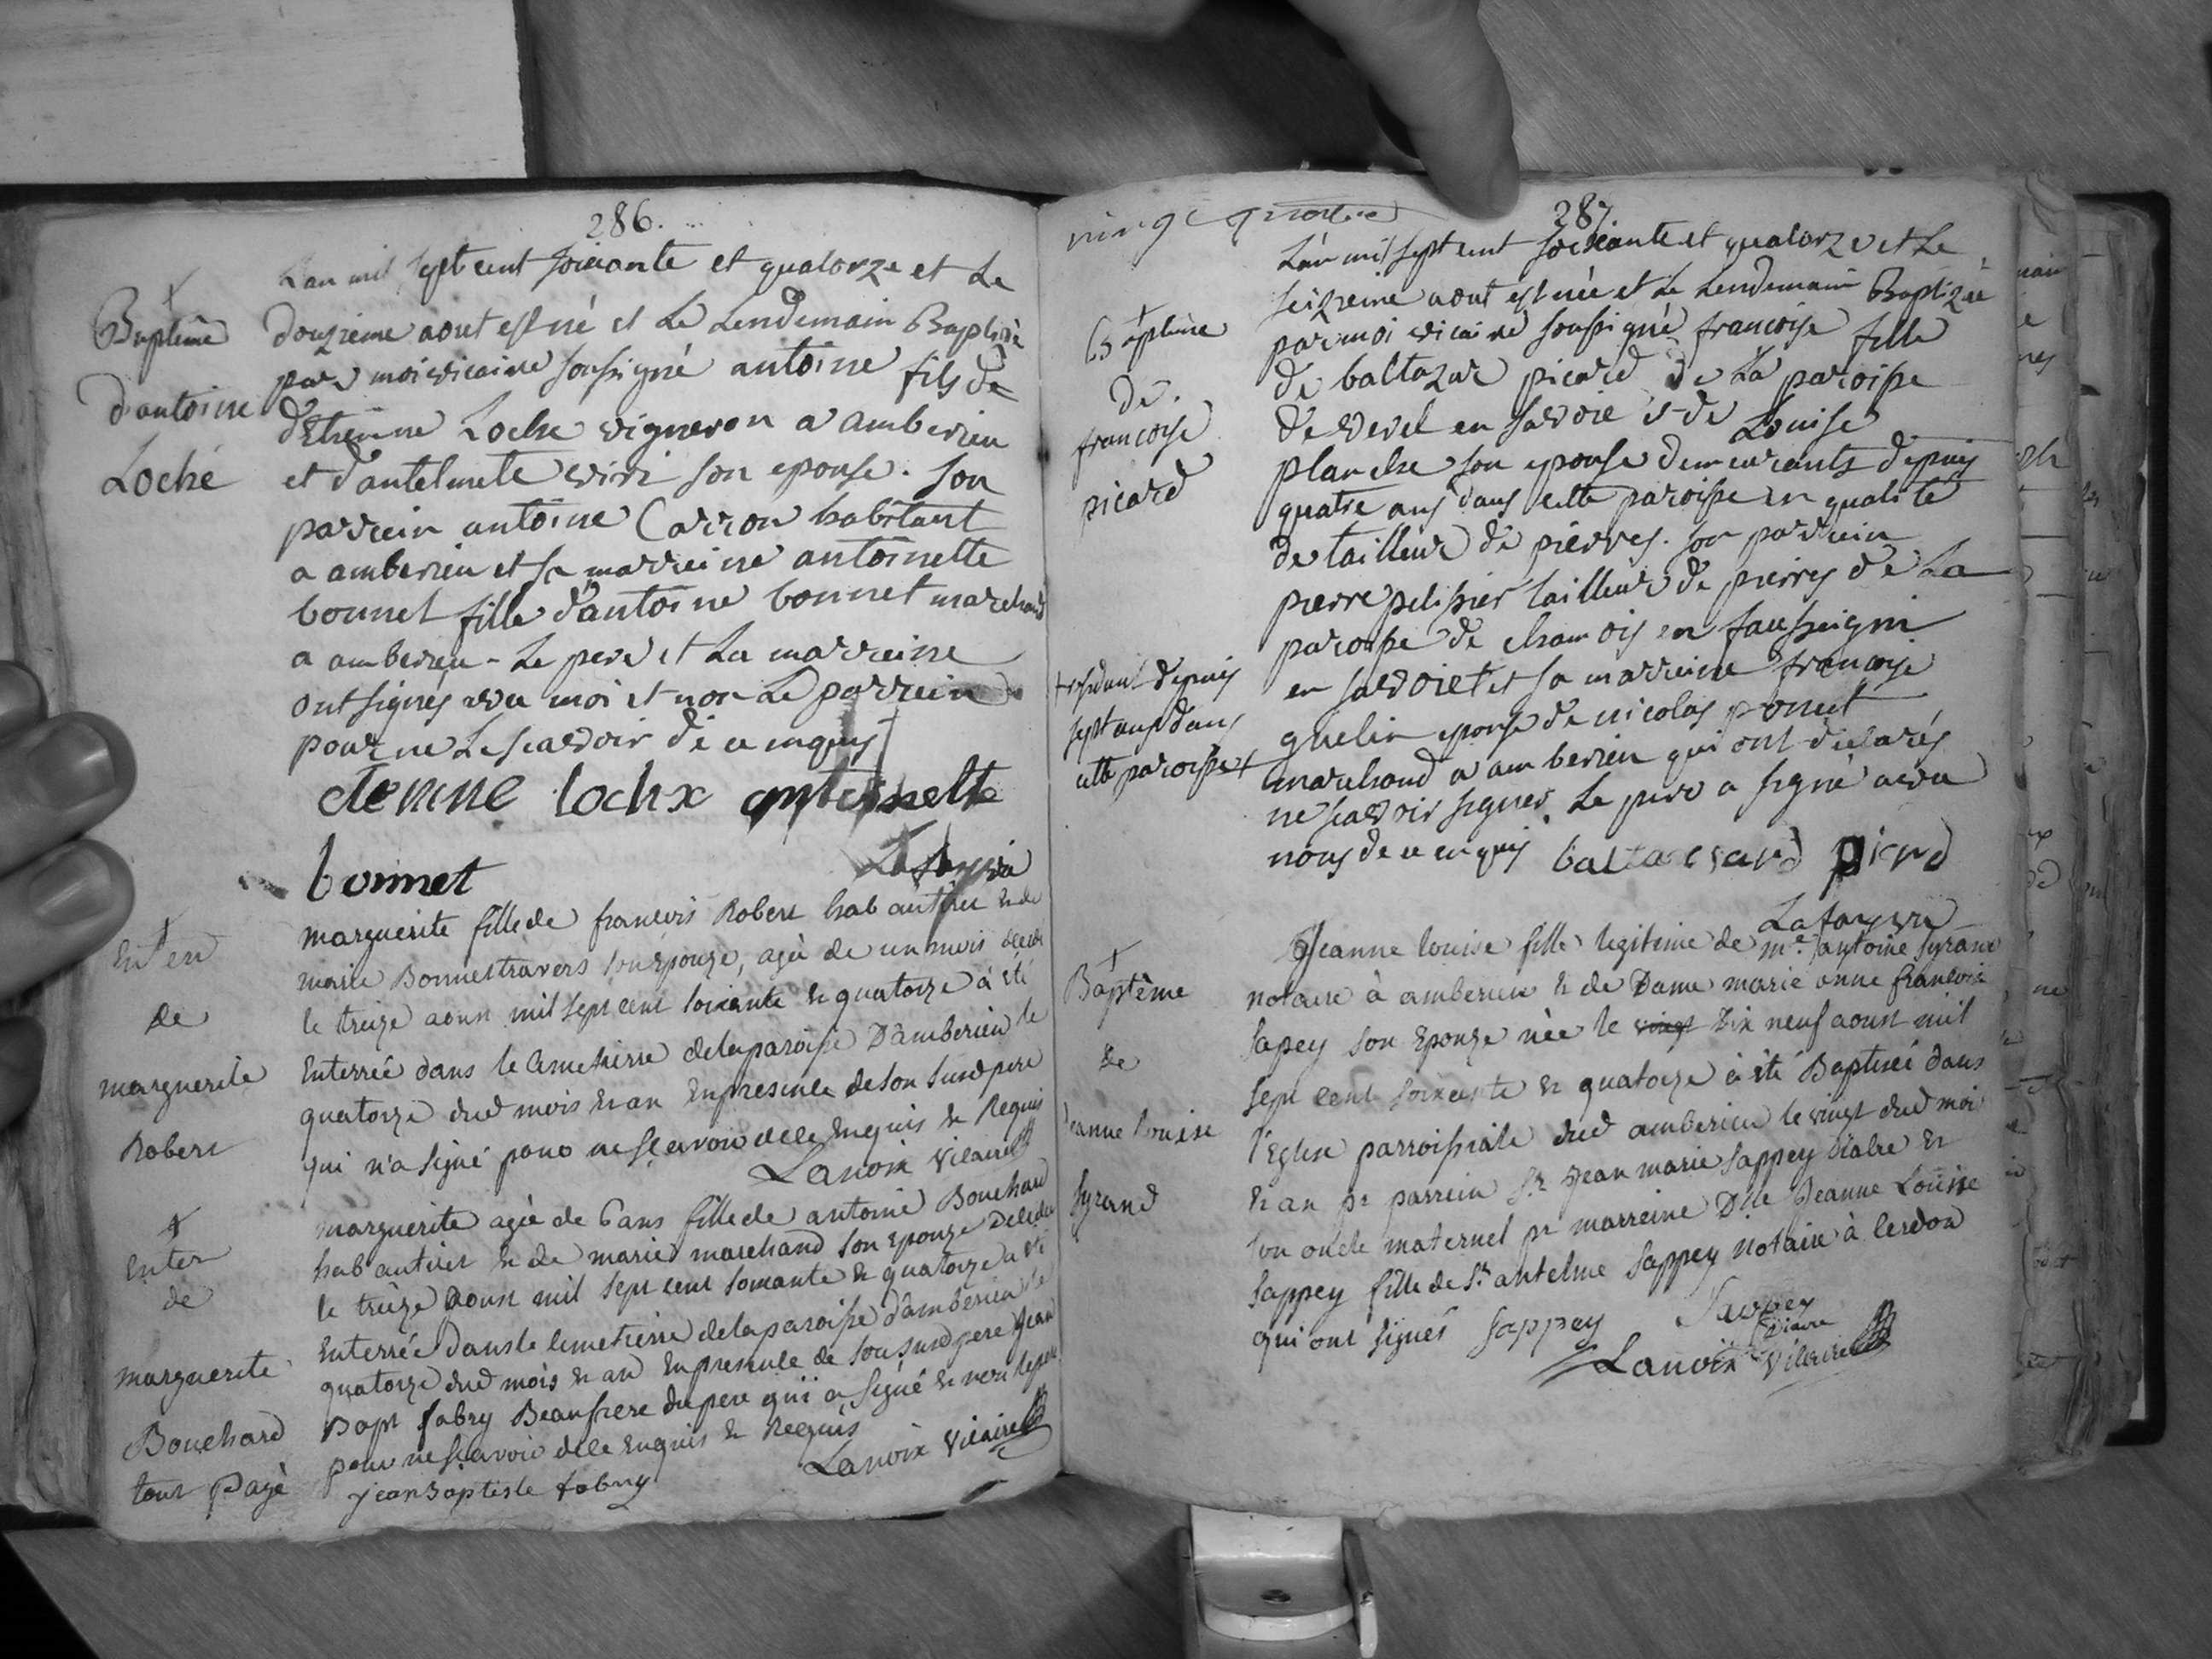 286.
L'an mil sept cent soixante et quatorze et Le
Baptême
douzieme aout est né et Le Lendemain Baptisé
par moi vicaire soussigné antoine fils de
d'antoine
d'Etienne Loche vigneron a amberieu
Loché
et d'antelmete vivi son epouse. son
parrein antoine Carron habitant
a amberieu et sa marreine antoinette
bonnet fille d'antoine bonnet marchand
a amberieu - Le pere et La marreine
ont signés avec moi et non Le parrein
pour ne Le scavoir de ce enquis
etienne lochx antoinelte
bonnet
marguerite fille de francois Robert hab audit lieu & de
Enten
marie Bonnestravers son Epouze, agée de un mois
de
le treize aoust mil sept cent soixante & quatorze à été
marguerite
Enterrée dans le Cimetierre de la paroisse D'amberieu le
Robert
quatorze dud mois & an En presence de son susd pere
qui n'a signé pour ne scavoir de ce Enquis & Requis
Lanoix vicaire
marguerite agée de 6 ans fille de antoine Bouchard
Enter
hab audit lieu & de marie marchand son Epouze Decedée
de
le treize Aoust mil sept cent soixante & quatorze a été
Enterrée Dans le Cimetierre de la paroisse d'amberieu le
marguerite
quatorze dud mois & an En presence de son susd pere Jean
Bouchard
Bapt fabry Beaufrere du pere qui a signé & non le pere
tout Payé
pour ne scavoir de ce Enquis & Requis
Lanoix vicaire
Jean Baptiste fabry
vingt quatre
287.
L'an mil sept cent soixante et quatorze et Le
seizieme aout est née et Le Lendemain Baptizée
Baptême
par moi vicaire soussigné francoise fille
de.
de baltazar picard de La paroisse
francoise
de verel en savoie et de Louise
picard
planche son epouse demeurants depuis
quatre ans dans cette paroisse en qualité
de tailleur de pierres. son parrein
pierre pelissier tailleur de pierres de La
paroisse de chamois en faussigni
+ residant depuis
sept ans dans
cette paroisse +
en savoie + et sa marreine francoise
guelin epouse de nicolas ponet
marchand a amberieu qui ont declarés
ne scavoir signer. Le pere a signé avec
nous de ce enquis baltacsard picrd
Jeanne louise fille legitime de me. antoine Syrand
Baptême
notaire à amberieu & de Dame marie anne francoise
de
Sapey son Epouze née le vingt Dix neuf aoust mil
Jeanne Louise
sept cent soixante & quatorze à été Baptisée dans
Syrand
l'Eglise parroissiale dud amberieu le vingt dud mois
& an pr parrein Sr Jean marie Sappey Diacre &
son oncle maternel pr marreine Dlle Jeanne Louise
Sappey fille de Sr antelme Sappey Notaire à Cerdon
qui ont signés Sappey Sappey
Diacre
Lanoix vicaire